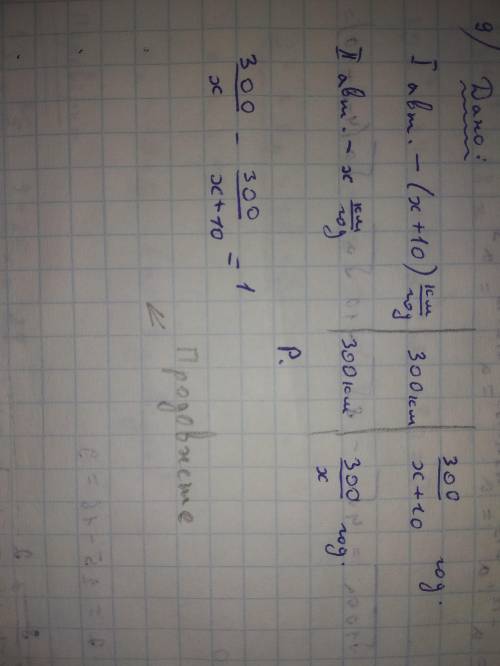 9) Дано:
I авт. – (x+10) км/год | 300км | 300/x+10 год.
II авт. – x км/год | 300км | 300/x год.
Р.
300/x – 300/x+10 = 1
Продовжсте